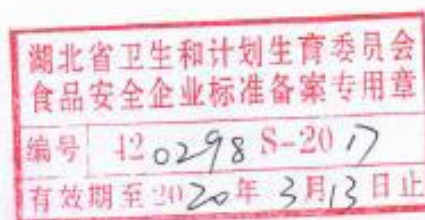 湖北省卫生和计划生育委员会
食品安全企业标准备案专用章
编号 420298 S-2017
有效期至2020年3月13日止